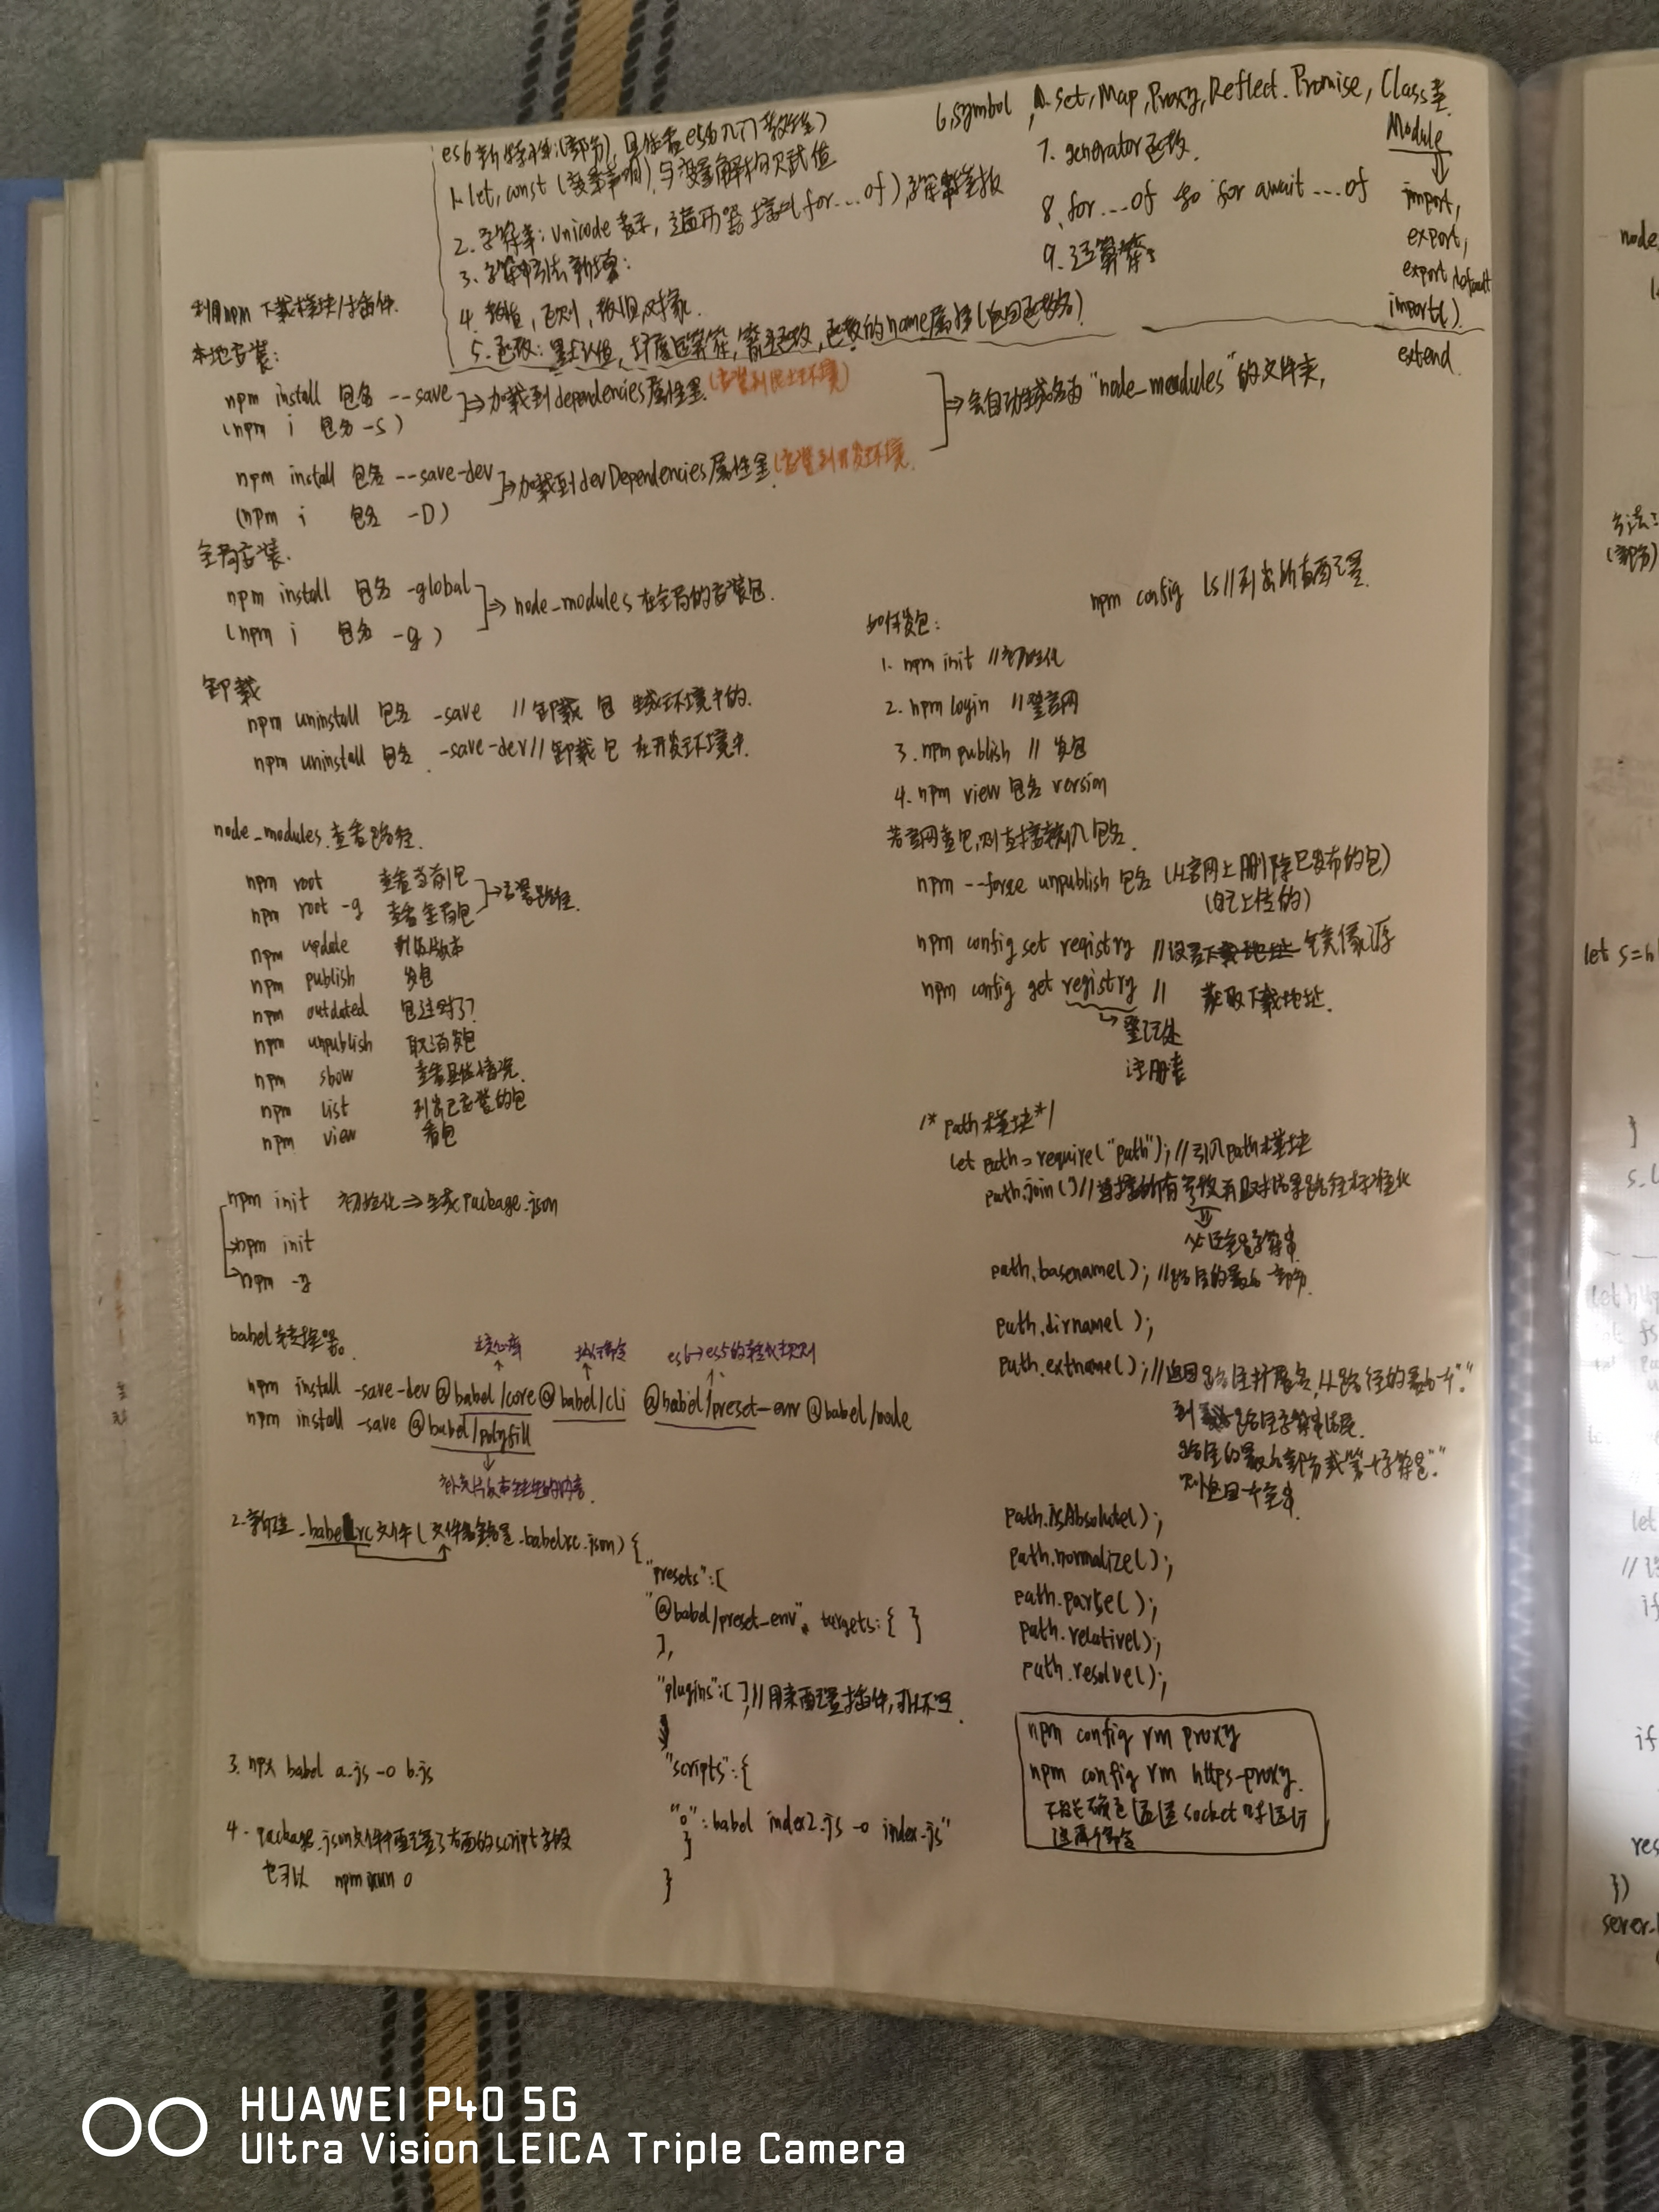 es6新特性(部分),具体看es6入门教程)
1. let, const (变量声明),与变量解构赋值
2. 字符串:Unicode表示,遍历器接口(for...of),字符串模板
3. 字符串方法新增:
4. 数值,正则,数组,对象.
5. 函数:默认值,扩展运算符,箭头函数,函数的name属性(返回函数名)
6. symbol, set, Map, Proxy, Reflect. Promise, Class类.
7. generator函数.
8. for...of 和 for await ...of
9. 运算符:
Module
import,
export,
export default
import().
extend
利用npm下载模块/插件.
本地安装:
npm install 包名 --save
(npm i 包名 -S)
⇒加载到dependencies属性里.
npm install 包名 --save-dev
(npm i 包名 -D)
⇒加载到devDependencies属性里(安装到开发环境.
⇒会自动生成名为"node_modules"的文件夹,
全局安装.
npm install 包名 -global
(npm i 包名 -g)
⇒ node_modules在全局的安装包.
卸载
npm uninstall 包名 -save //卸载 包 生成环境中的.
npm uninstall 包名 -save-dev//卸载 包 在开发环境中.
node_modules.查看路径.
npm root 查看当前包
npm root -g 查看全局包
⇒安装路径.
npm update 升级版本
npm publish 发包
npm outdated 包过时了?
npm unpublish 取消发包
npm show 查看具体情况.
npm list 列出已安装的包
npm view 看包
npm init 初始化⇒生成package.json
npm init
npm -y
babel转换器。
核心库
执行命令
es6→es5的转换规则
npm install -save-dev @babel/core @babel/cli @babel/preset-env @babel/node
npm install -save @babel/polyfill
2. 新建 .babelrc文件(文件名全名是.babelrc.json) {
"presets":[
"@babel/preset-env", targets:{ }
],
"plugins":[ ],//用来配置插件,可以不写.
}
3. npx babel a.js -o b.js
"scripts":{
"o": babel index2.js -o index.js"
}
}
4. package.json文件中配置了右面的script字段
也可以 npm run o
npm config ls//列出所有配置.
如何发包:
1. npm init //初始化
2. npm login //登官网
3. npm publish // 发包
4. npm view 包名 version
若官网查包,则直接输入包名.
npm --force unpublish 包名 (从官网上删除已发布的包)
(自己上传的)
npm config set registry //设置下载地址 镜像源
npm config get registry // 获取下载地址.
登记处
注册表
/* path模块*/
let path = require("path"); //引入path模块
path.join()//连接所有参数并且对结果路径标准化
必须全是字符串
path.basename(); //路径的最后一部分.
path.dirname( );
path.extname();//返回路径扩展名,从路径的最后一个"."
到 路径字符串结尾.
路径的最后部分或第一个字符是"."
则返回一个空串
path.isAbsolute();
path.normalize();
path.parse( );
path.relative();
path.resolve();
npm config rm proxy
npm config rm https-proxy.
不能正确连接socket时运行
这两个命令
HUAWEI P40 5G
Ultra Vision LEICA Triple Camera